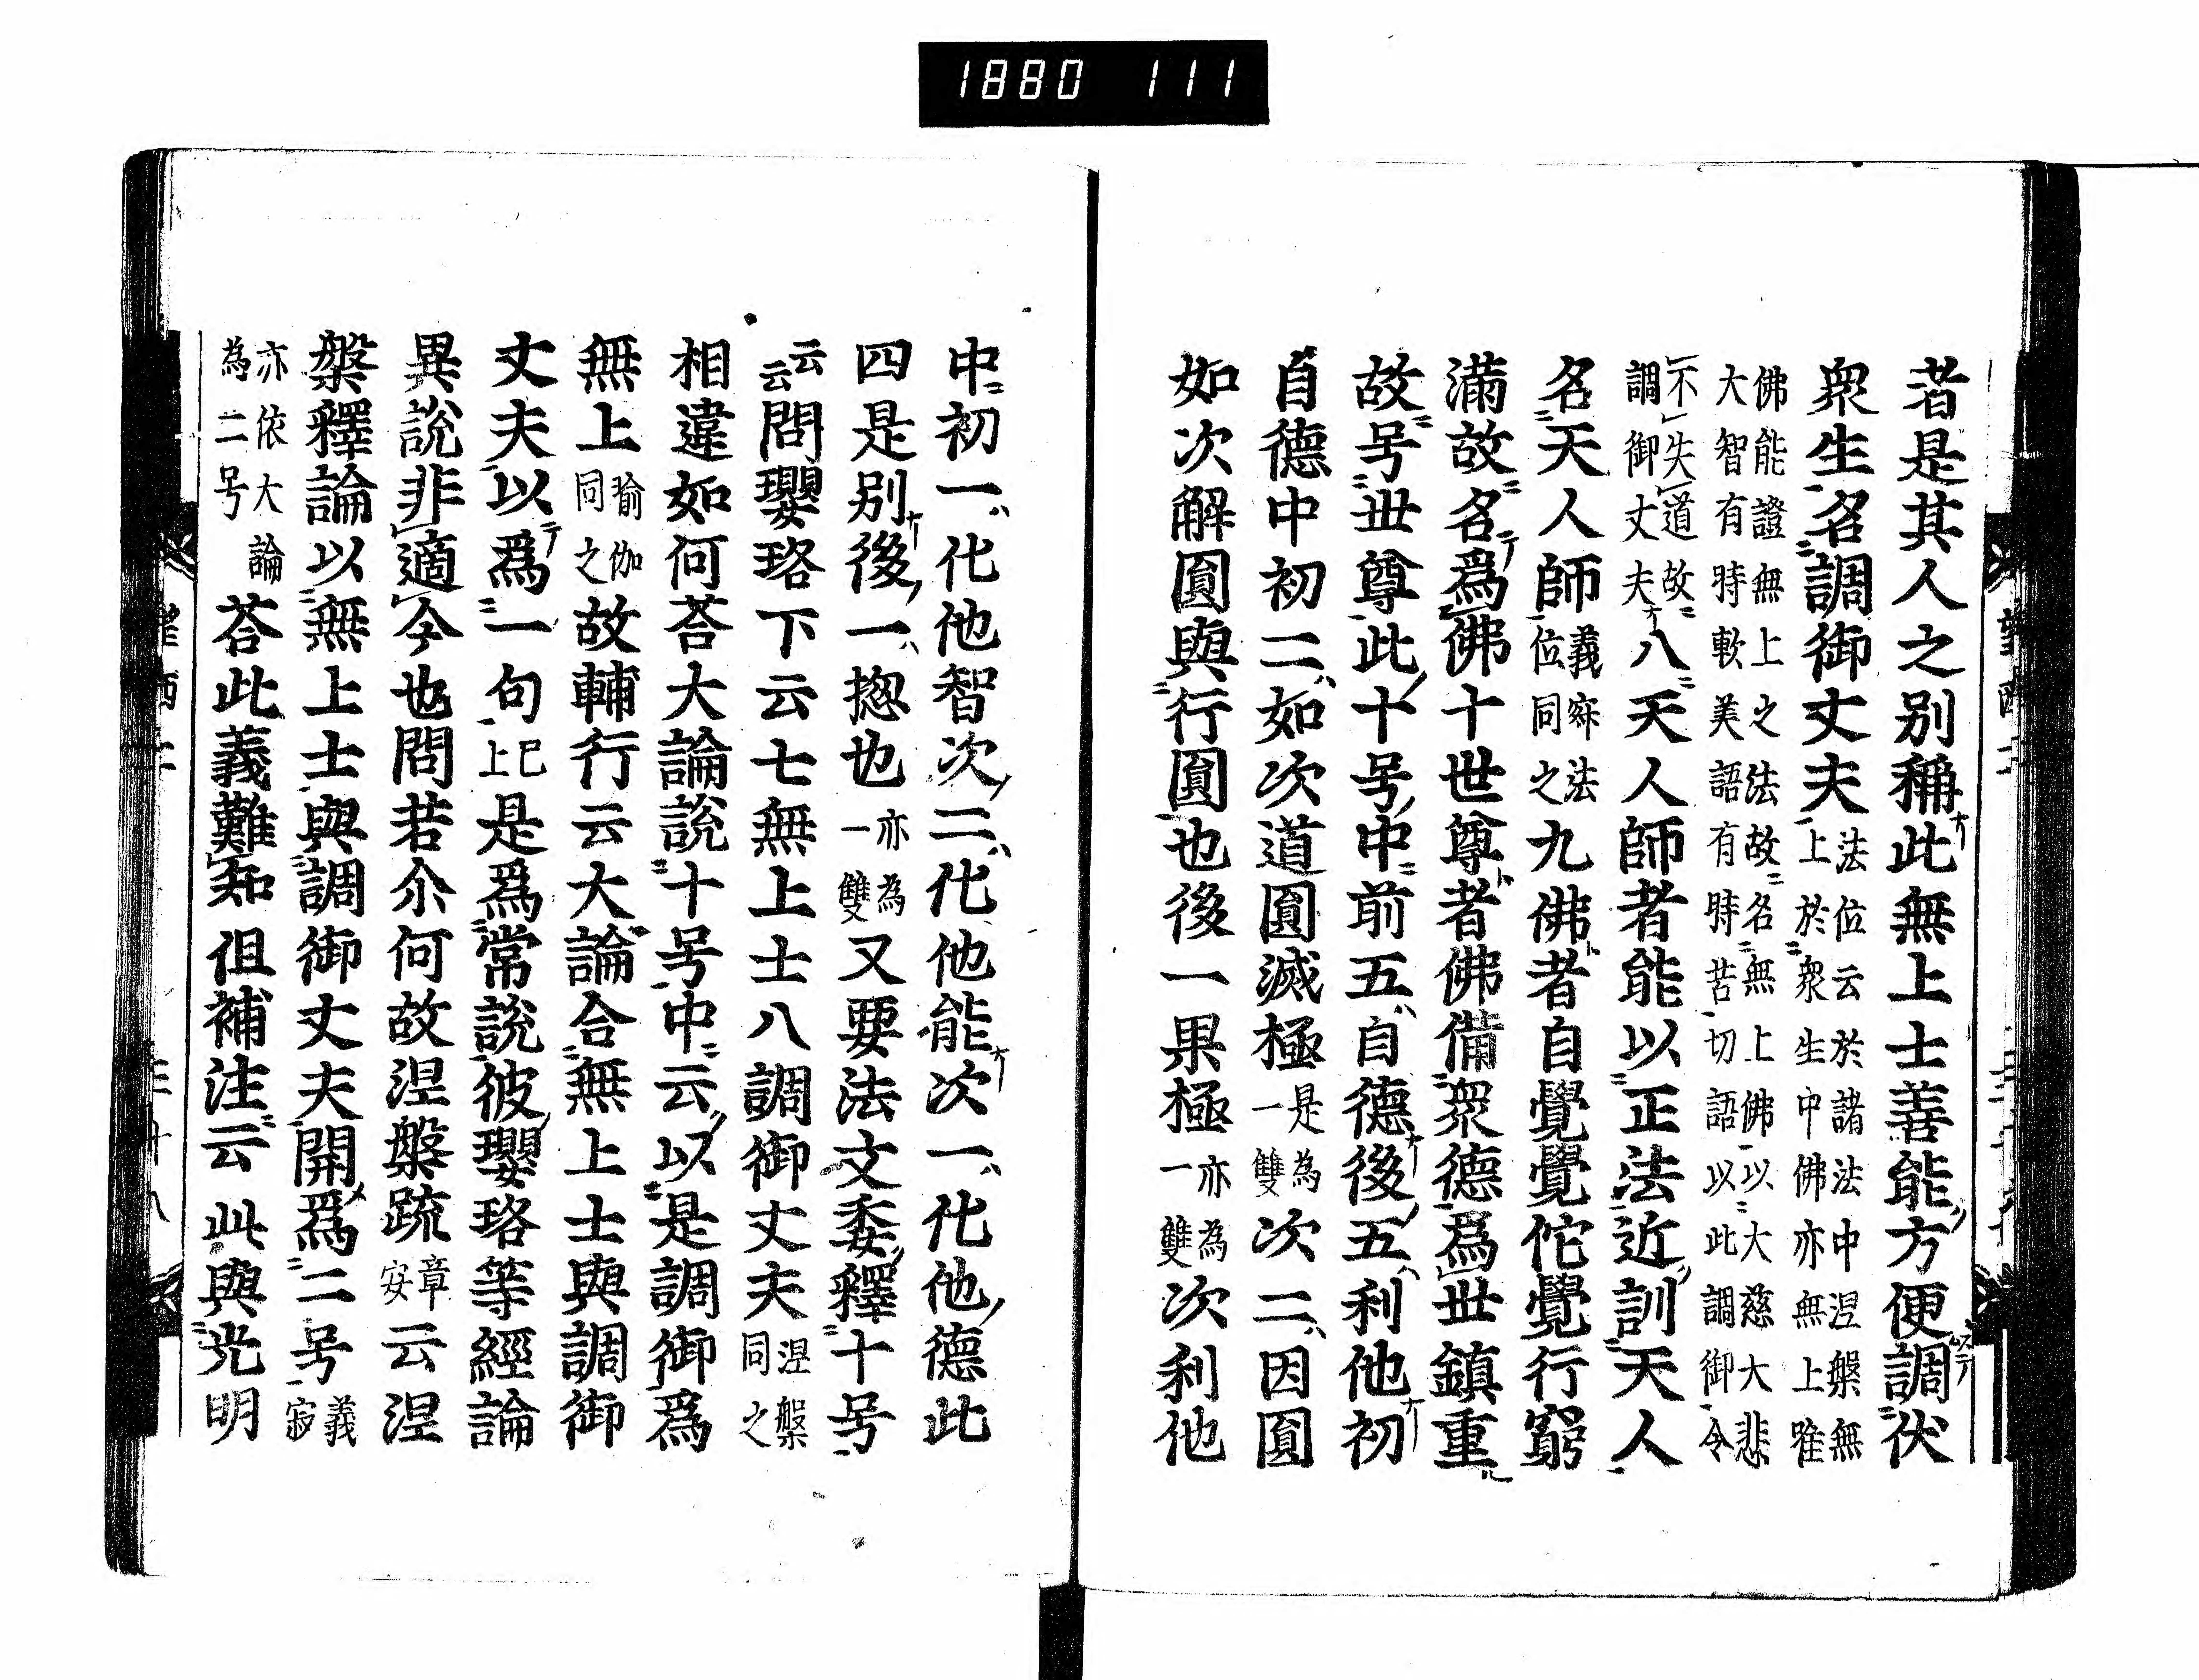 1880 111
者是其人之別稱此無上士善能方便調伏
衆生名調御丈夫法位云於諸法中涅槃無
上於衆生中佛亦無上唯
佛能證無上之法故名無上佛以大慈大悲
大智有時軟美語有時苦切語以此調御令
不失道故
調御丈夫八天人師者能以正法近訓天人
名天人師義寂法
位同之九佛者自覺覺佗覺行窮
滿故名爲佛十世尊者佛備衆德爲世鎮重
故号世尊此十号中前五自德後五利他初
自德中初二如次道圓滅極是為
一雙次二因圓
如次解圓與行圓也後一果極亦為
一雙次利他
中初一化他智次二化他能次一化他德此
四是別後一揔也亦為
一雙又要法文委釋十号
云云問瓔珞下云七無上士八調御丈夫涅槃
同之
相違如何荅大論說十号中云以是調御爲
無上瑜伽
同之故輔行云大論合無上士與調御
丈夫以爲一句已
上是爲常說彼瓔珞等經論
異說非適今也問若尒何故涅槃疏章
安云涅
槃釋論以無上士與調御丈夫開爲二号義
寂
亦依大論
為二号荅此義難知但補注云此與光明